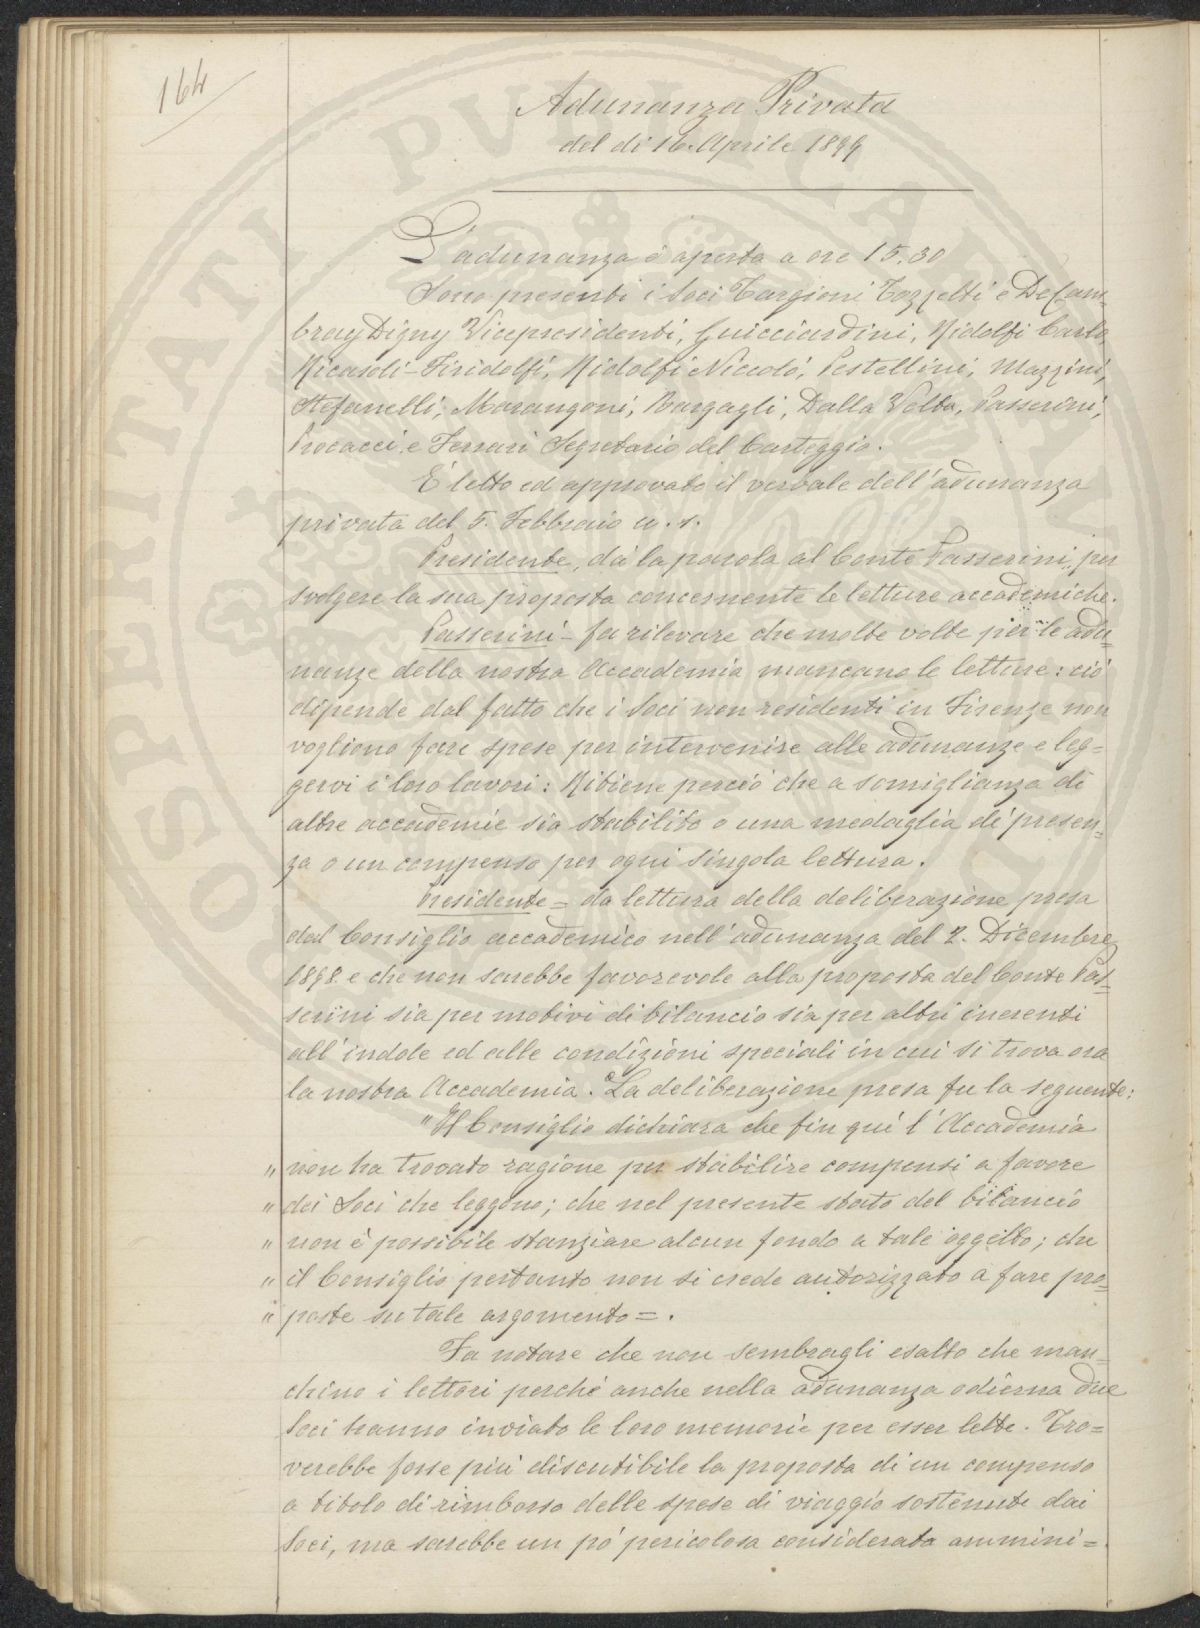 164
Adunanza Privata
del dì 16. Aprile 1899
L'adunanza è aperta a ore 15.30
Sono presenti i Soci Targioni Tozzetti e De Cam-
bray Digny Vicepresidenti, Guicciardini, Ridolfi Carlo,
Ricasoli-Firidolfi, Ridolfi Niccolò, Pestellini, Mazzini,
Stefanelli, Marangoni, Bargagli, Dalla Volta, Passerini,
Procacci e Ferrari Segretario del Carteggio.
È letto ed approvato il verbale dell'adunanza
privata del 5. Febbraio u. s.
Presidente, dà la parola al Conte Passerini per
svolgere la sua proposta concernente le letture accademiche.
Passerini - fa rilevare che molte volte per le adu=
nanze della nostra Accademia mancano le letture: ciò
dipende dal fatto che i Soci non residenti in Firenze non
vogliono fare spese per intervenire alle adunanze e leg=
gervi i loro lavori: Ritiene perciò che a somiglianza di
altre accademie sia stabilito o una medaglia di presen=
za o un compenso per ogni singola lettura.
Presidente = da lettura della deliberazione presa
dal Consiglio accademico nell'adunanza del 2. Dicembre
1898 e che non sarebbe favorevole alla proposta del Conte Pas=
serini sia per motivi di bilancio sia per altri inerenti
all'indole ed alle condizioni speciali in cui si trova ora
la nostra Accademia. La deliberazione presa fu la seguente:
"Il Consiglio dichiara che fin qui l'Accademia
" non ha trovato ragione per stabilire compensi a favore
" dei Soci che leggono; che nel presente stato del bilancio
" non è possibile stanziare alcun fondo a tale oggetto; che
" il Consiglio pertanto non si crede autorizzato a fare pro=
" poste su tale argomento =.
Fa notare che non sembragli esatto che man=
chino i lettori perchè anche nella adunanza odierna due
Soci hanno inviato le loro memorie per esser lette. Tro=
verebbe forse più discutibile la proposta di un compenso
a titolo di rimborso delle spese di viaggio sostenute dai
Soci, ma sarebbe un pò pericolosa considerata ammini=
PROSPERITATI PVBLICAE AVGENDAE